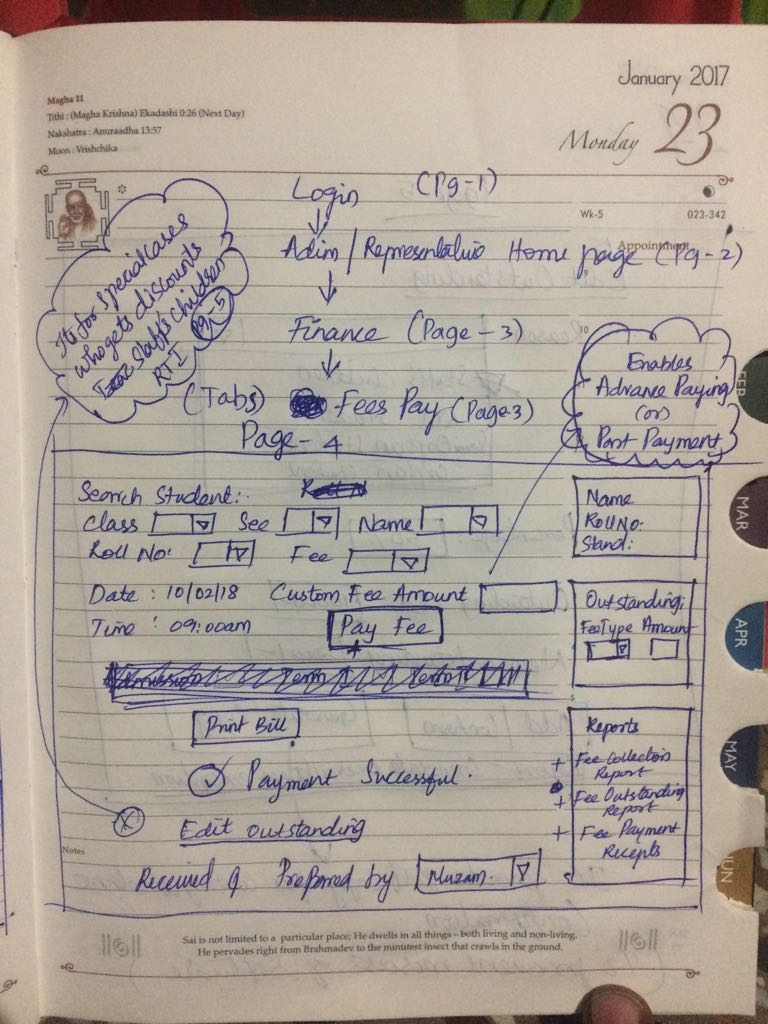 January 2017
Monday 23
Magha 11
Tithi : (Magha Krishna) Ekadashi 0:26 (Next Day)
Nakshatra : Anuraadha 13:57
Moon : Vrishchika
Wk-5
023-342
Appointment
Login (Pg-1)
Adim / Representativ Home page (Pg-2)
Finance (Page - 3)
(Tabs) Fees Pay (Page 3)
Page - 4
Its for special cases
who gets discounts
Staff's children
RTI
Pg-5
Enables
Advance Paying
(or)
Part Payment
10
Search Student:
Class
Sec
Name
Roll No:
Fee
Date : 10/02/18 Custom Fee Amount
Time : 09:00am
Pay Fee
Print Bill
Payment Successful.
Edit Outstanding
Received & Prepared by Muzam.
Name
Roll No:
Stand:
Outstanding:
Fee Type Amount
5
Reports
+ Fee Collection
Report
+ Fee Outstanding
Report
+ Fee Payment
Recepts
Notes
Sai is not limited to a particular place; He dwells in all things – both living and non-living.
He pervades right from Brahmadev to the minutest insect that crawls in the ground.
FEB
MAR
APR
MAY
JUN